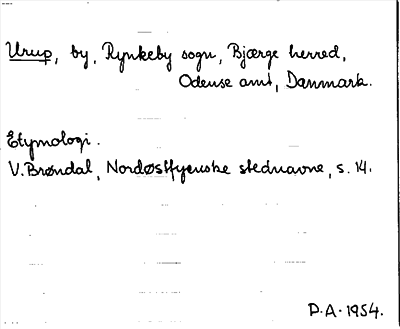 Urup, by, Rynkeby sogn, Bjærge herred,
Odense amt, Danmark.
Etymologi.
V. Brøndal, Nordøstfyenske stednavne, s. 14.
P.A. 1954.